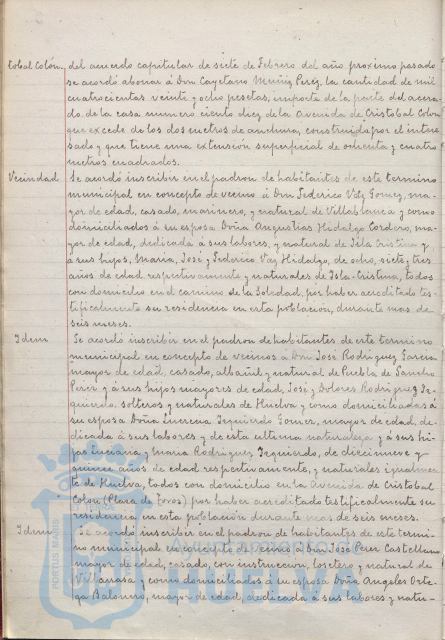 tobal Colón. del acuerdo capitular de siete de Febrero del año proximo pasado
se acordó abonar á Don Cayetano Muñiz Perez, la cantidad de mil
cuatrocientas veinte y ocho pesetas, importe de la parte del acera-
do, de la casa numero ciento diez de la Avenida de Cristobal Colon
que excede de los dos metros de anchura, construida por el intere-
sado y que tiene una extensión superficial de ochenta y cuatro
metros cuadrados.
Vecindad Se acordó inscribir en el padron de habitantes de este termino
municipal en concepto de vecino á Don Federico Vaz Gomez, ma-
yor de edad, casado, marinero, y natural de Villablanca y como
domiciliados á su esposa Doña Angustias Hidalgo Cordero, ma-
yor de edad, dedicada á sus labores, y natural de Isla Cristina y
á sus hijos, Maria, José y Federico Vaz Hidalgo, de ocho, siete y tres
años de edad respectivamente y naturales de Isla-Cristina, todos
con domicilio en el camino de la Soledad, por haber acreditado tes-
tificalmente su residencia en esta población, durante mas de
seis meses.
Idem Se acordó inscribir en el padron de habitantes de este termino
municipal en concepto de vecinos á Don José Rodriguez Garcia
mayor de edad, casado, albañil y natural de Puebla de Sancho
Perez y á sus hijos mayores de edad, José y Dolores Rodriguez Iz-
quierdo, solteros y naturales de Huelva y como domiciliados á
su esposa Doña Lucrecia Izquierdo Gomez, mayor de edad, de-
dicada á sus labores y de esta ultima naturaleza y á sus hi-
jas Luciana y Maria Rodriguez Izquierdo, de diecinueve y
quince años de edad respectivamente, y naturales igualmen-
te de Huelva, todos con domicilio en la Avenida de Cristobal
Colon (Plaza de Toros) por haber acreditado testificalmente su
residencia en esta población durante mas de seis meses.
Idem Se acordó inscribir en el padron de habitantes de este termi-
no municipal en concepto de vecino á Don José Perez Castellano
mayor de edad, casado, con instruccion, losetero y natural de
Villarrasa y como domiciliados á su esposa Doña Angeles Orte-
ga Balonero, mayor de edad, dedicada á sus labores y natu-
PORTUS MARIS